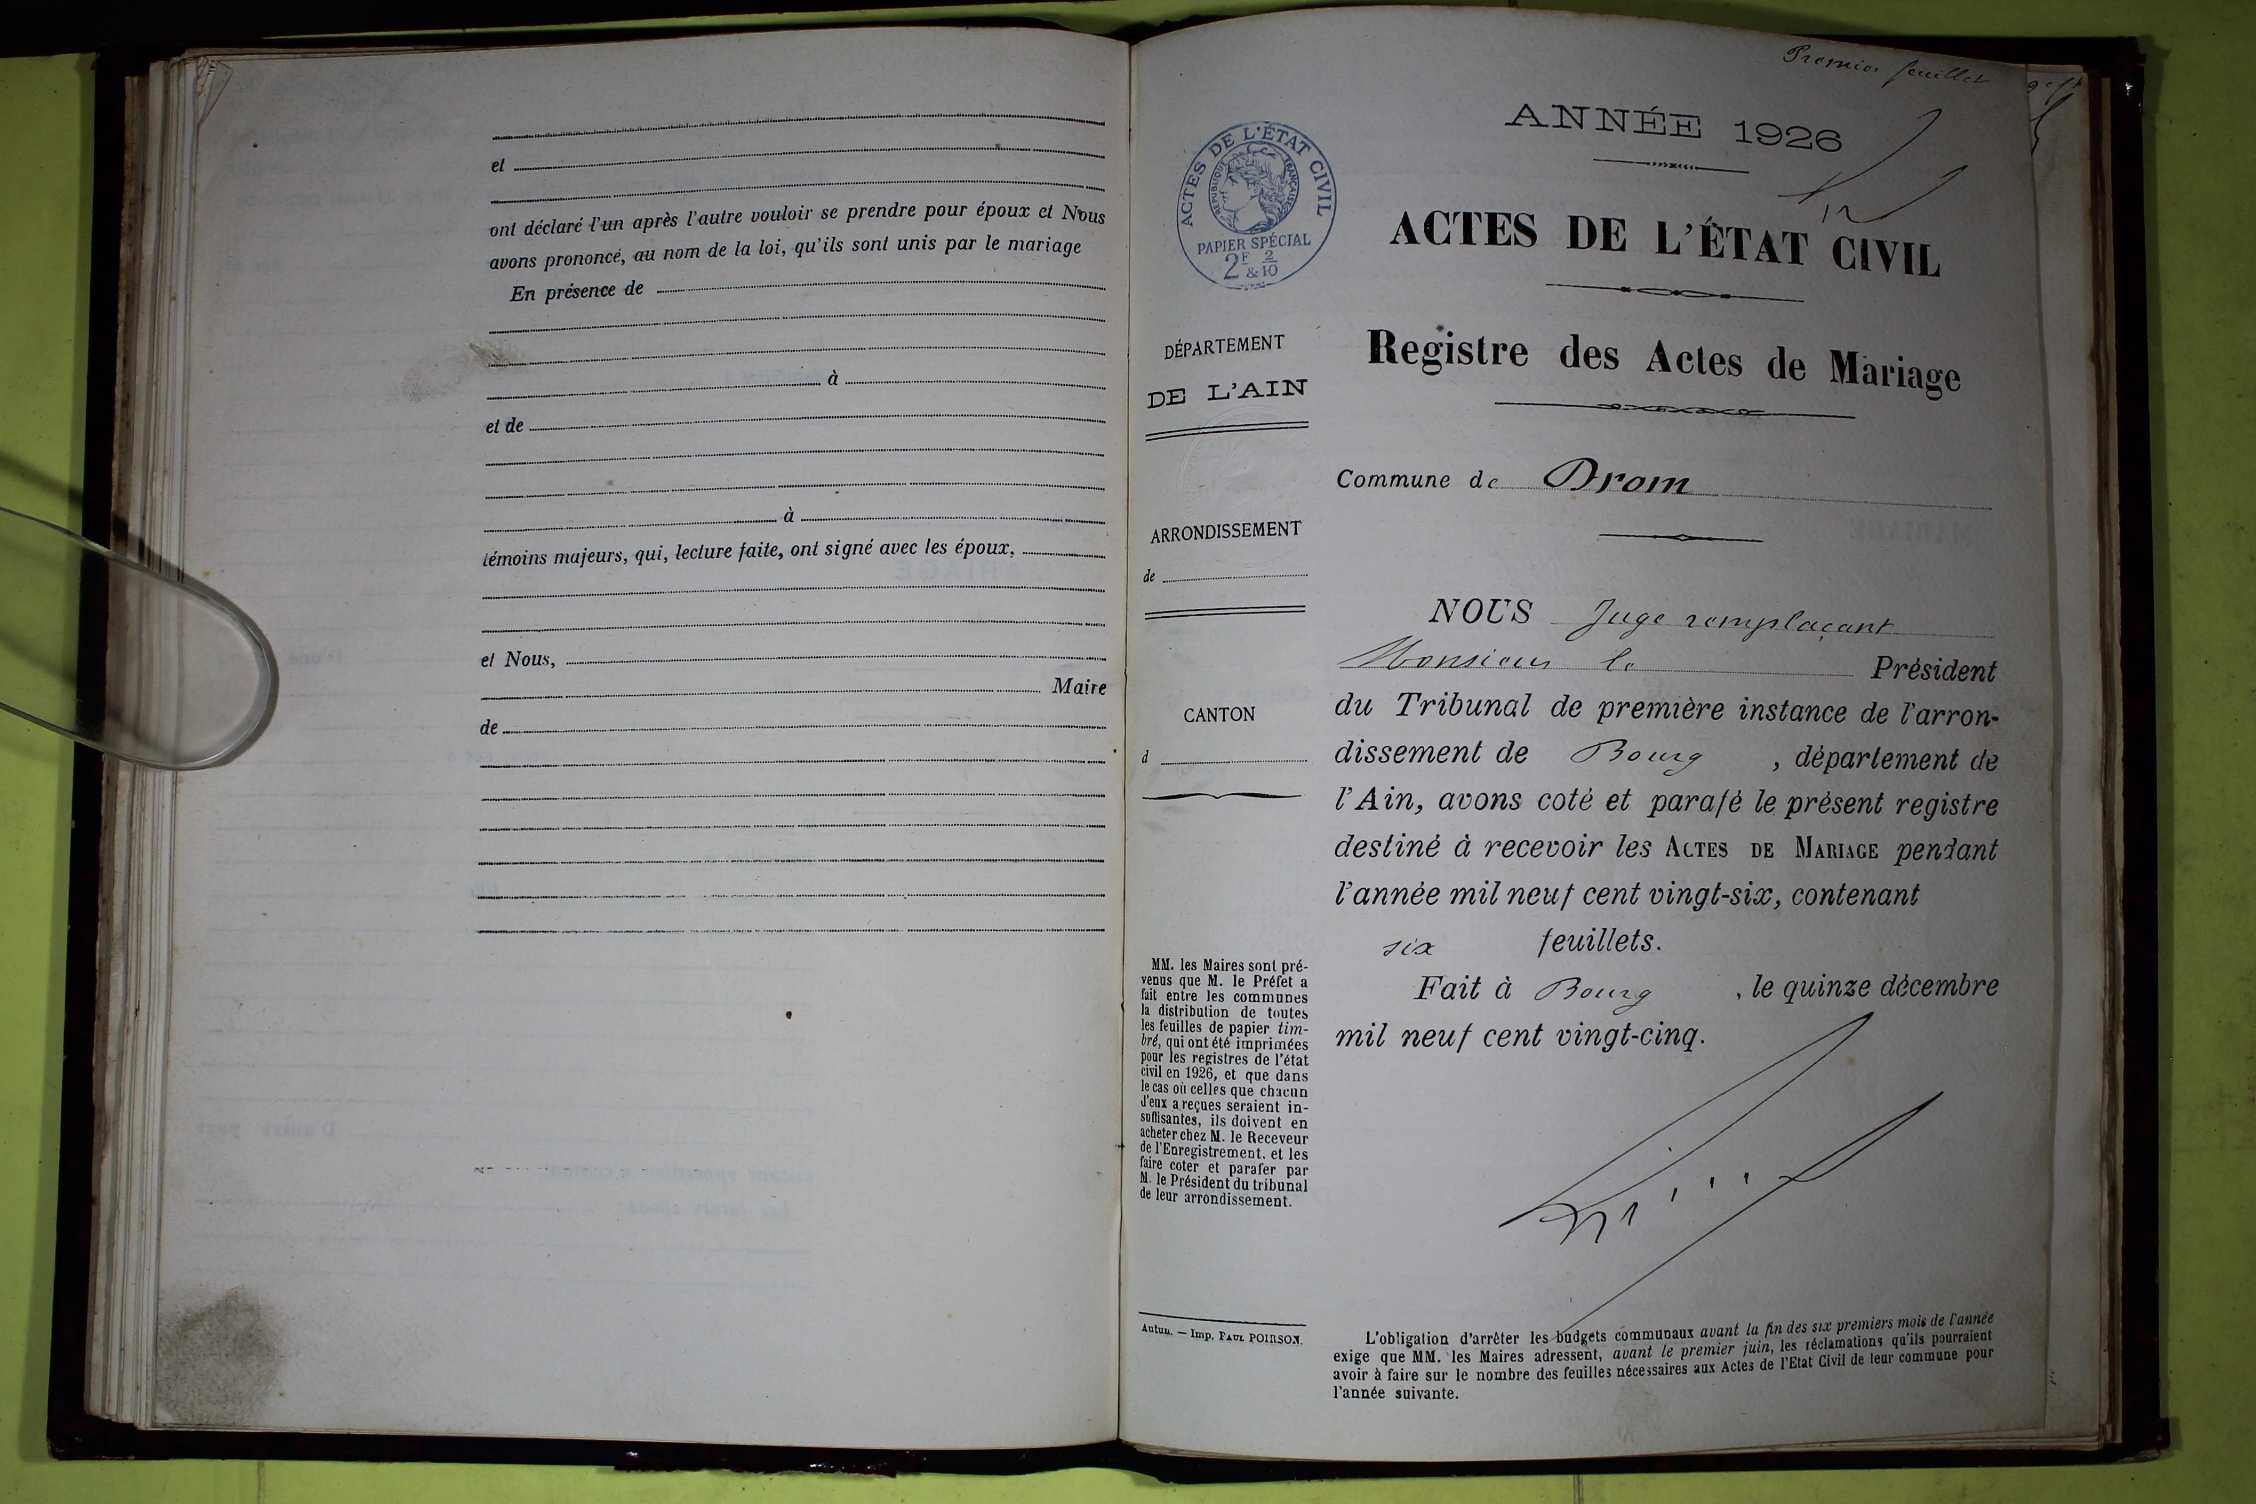 et
ont déclaré l'un après l'autre vouloir se prendre pour époux et Nous
avons prononcé, au nom de la loi, qu'ils sont unis par le mariage
En présence de
à
et de
à
témoins majeurs, qui, lecture faite, ont signé avec les époux,
et Nous,
Maire
de
Premier feuillet
ANNÉE 1926
ACTES DE L'ÉTAT CIVIL
RÉPUBLIQUE FRANÇAISE
PAPIER SPÉCIAL
2F & 2/10
ACTES DE L'ÉTAT CIVIL
Registre des Actes de Mariage
DÉPARTEMENT
DE L'AIN
Commune de Drom
ARRONDISSEMENT
de
CANTON
d
NOUS Juge remplaçant
Monsieur le Président
du Tribunal de première instance de l'arron-
dissement de Bourg, département de
l'Ain, avons coté et parafé le présent registre
destiné à recevoir les ACTES DE MARIAGE pendant
l'année mil neuf cent vingt-six, contenant
six feuillets.
Fait à Bourg, le quinze décembre
mil neuf cent vingt-cinq.
MM. les Maires sont pré-
venus que M. le Préfet a
fait entre les communes
la distribution de toutes
les feuilles de papier tim-
bré, qui ont été imprimées
pour les registres de l'état
civil en 1926, et que dans
le cas où celles que chacun
d'eux a reçues seraient in-
suffisantes, ils doivent en
acheter chez M. le Receveur
de l'Enregistrement, et les
faire coter et parafer par
M. le Président du tribunal
de leur arrondissement.
Autun. — Imp. PAUL POIRSON.
L'obligation d'arrêter les budgets communaux avant la fin des six premiers mois de l'année
exige que MM. les Maires adressent, avant le premier juin, les réclamations qu'ils pourraient
avoir à faire sur le nombre des feuilles nécessaires aux Actes de l'Etat Civil de leur commune pour
l'année suivante.